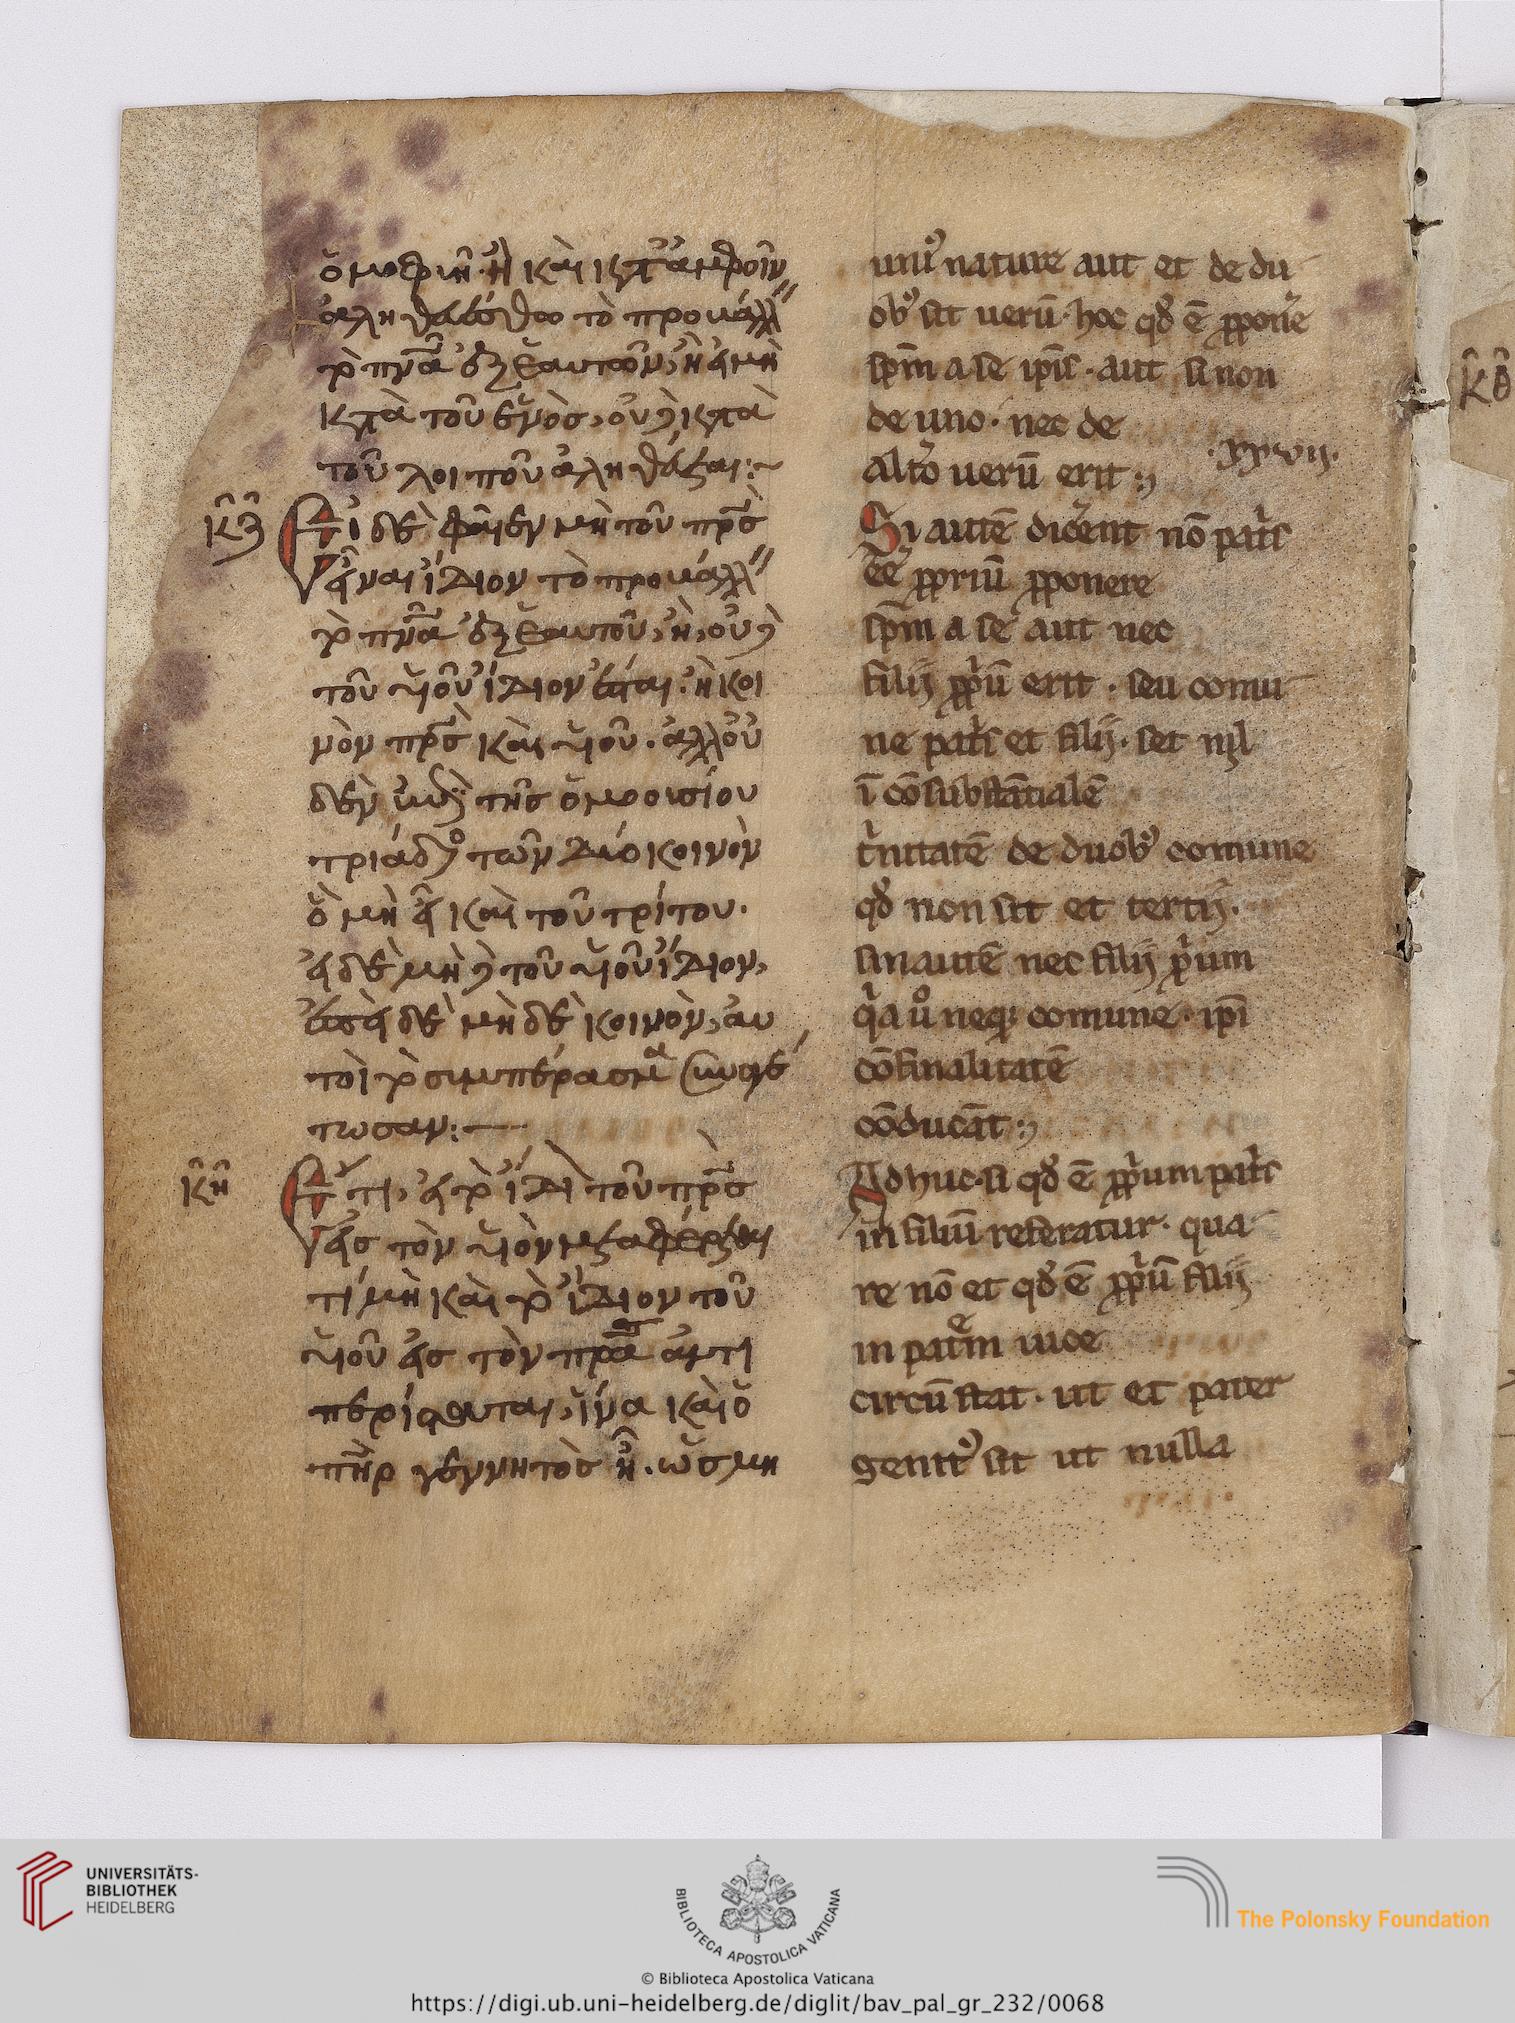 ὁμοφυῆ. ἢ καὶ κατ' ἀμφοῖν
ἀληθεύεσθαι τὸ προβάλλ
τὸ πνα ἐξ ἑαυτοῦ, ἢ εἰ μὴ
κατὰ τοῦ ἑνὸς, οὐδὲ κατὰ
τοῦ λοιποῦ ἀληθεύσεται:~
κζ Εἰ δὲ φαῖεν μὴ τοῦ πρς
εἶναι ἴδιον τὸ προβάλλ
τὸ πνα ἐξ ἑαυτοῦ, ἢ, οὐδὲ
τοῦ υἱοῦ ἴδιον ἔσται. ἢ κοι
νὸν πρς καὶ υἱοῦ. ἀλλ' οὐ
δὲν ἐπὶ τῆς ὁμοουσίου
τριάδος τῶν δύο κοινὸν
ὃ μὴ εἶ καὶ τοῦ τρίτου.
εἰ δὲ μὴ δὲ τοῦ υἱοῦ ἴδιον,
ἐπεὶ δὲ μὴ δὲ κοινὸν, αυ
τοὶ τὸ συμπέρασμα συναγέ
τωσαν:—
κη Ἔτι, εἰ τὸ ἴδι τοῦ πρς
εἰς τὸν υἱὸν μεταφέρεται
τί μὴ καὶ τὸ ἴδιον τοῦ
υἱοῦ εἰς τὸν πρα ἀντι
περιίσταται, ἵνα καὶ ὁ
πηρ γεννητὸς ἦ. ὡς μη
uni⁹ nature aut et de du
ob⁹ sit uerū. hoc qd ē ꝓpone
spm a se ipis. aut si non
de uno. nec de
altō uerū erit:
.xxvii.
Si autē dicent nō patis
eē ꝓpriū ꝓponere
spm a se aut nec
filij ꝓpū erit. seu comu
ne patis et filij. set nil
ī cōsubstātialē
tinitatē de duob⁹ comune
qd non sit et tertij.
sin autē nec filij pium
qa uo neq; comune. ipi
cōfinalitatē
cōducāt:
Adhuc. si qd ē ꝓpium patis
in filiū referatur. qua
re nō et qd ē ꝓpiū filij
in patem uice
circū stat. ut et pater
genit⁹ sit ut nulla
κθ
UNIVERSITÄTS-
BIBLIOTHEK
HEIDELBERG
BIBLIOTECA APOSTOLICA VATICANA
The Polonsky Foundation
© Biblioteca Apostolica Vaticana
https://digi.ub.uni-heidelberg.de/diglit/bav_pal_gr_232/0068